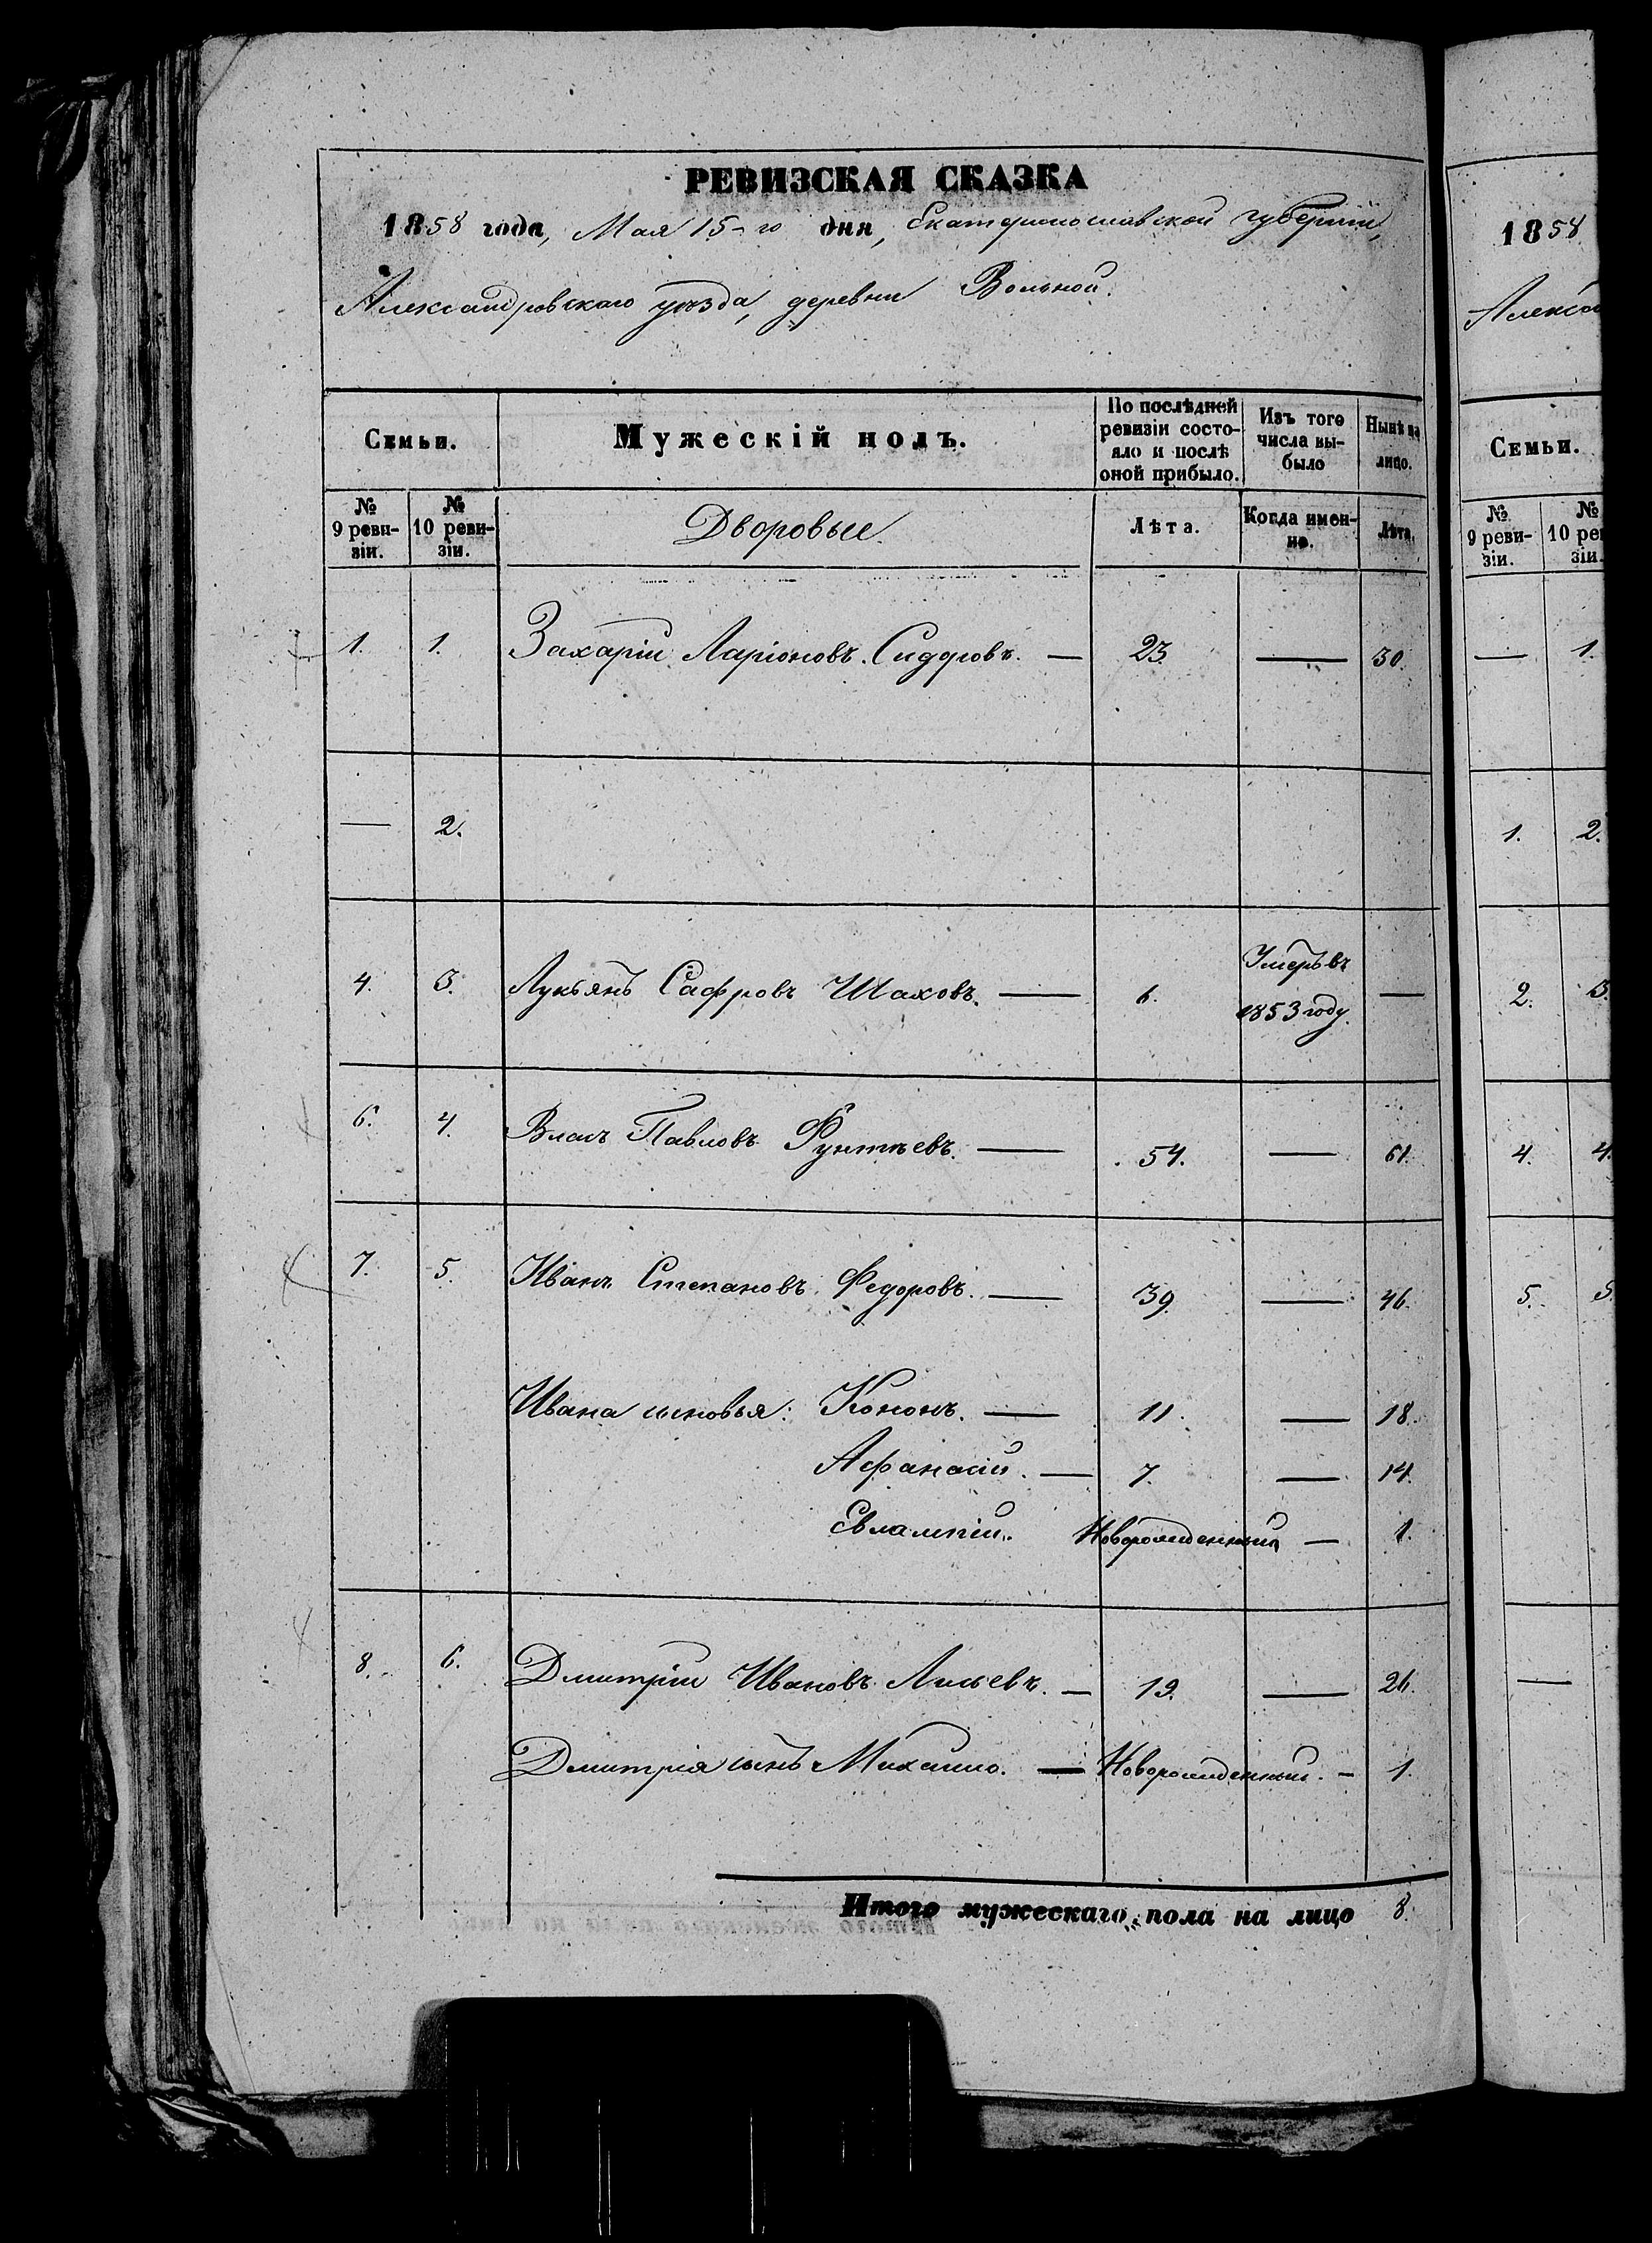 РЕВИЗСКАЯ СКАЗКА
1858 года, Мая 15-го дня, Екатеринославской губернии,
Александровскаго уѣзда, деревни Вольной.
Семьи. Мужескій полъ. По послѣдней ревизіи состояло и послѣ оной прибыло. Изъ того числа выбыло Нынѣ на лицо.
№ 9 ревизіи. № 10 ревизіи. Дворовые. Лѣта. Когда именно. Лѣта.
1. 1. Захарій Ларіоновъ Сидоровъ. — 23. — 30.
— 2.
4. 3. Лукьянъ Сафровъ Шаховъ. — 6. Умеръ въ 1853 году. —
6. 4. Власъ Павловъ Фунтѣевъ. — 54. — 61.
7. 5. Иванъ Степановъ Федоровъ. — 39. — 46.
Ивана сыновья: Кононъ. — 11. — 18.
Афанасій. — 7. — 14.
Евлампій. Новорожденный — 1.
8. 6. Дмитрій Ивановъ — 19. — 26.
Дмитрія сынъ Михаило. — Новорожденный. — 1.
Итого мужескаго пола на лицо 8.
1858
Алекса
Семьи.
№ 9 ревизіи. № 10 ре зіи.
— 1.
1. 2.
2. 3.
4. 4.
5. 5.
—